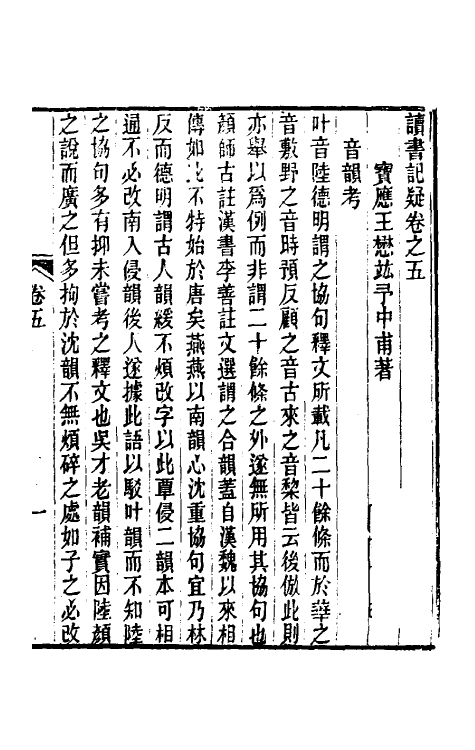 讀書記疑卷之五
寶應王懋竑予中甫著
音韻考
叶音陸德明謂之協句釋文所載凡二十餘條而於華之
音敷野之音時預反顧之音古來之音黎皆云後倣此則
亦舉以爲例而非謂二十餘條之外遂無所用其協句也
顏師古註漢書李善註文選謂之合韻蓋自漢魏以來相
傳如此不特始於唐矣燕燕以南韻心沈重協句宜乃林
反而德明謂古人韻緩不煩改字以此覃侵二韻本可相
通不必改南入侵韻後人遂據此語以駁叶韻而不知陸
之協句多有抑未嘗考之釋文也吳才老韻補實因陸顏
之說而廣之但多拘於沈韻不無煩碎之處如子之必改
卷五
一